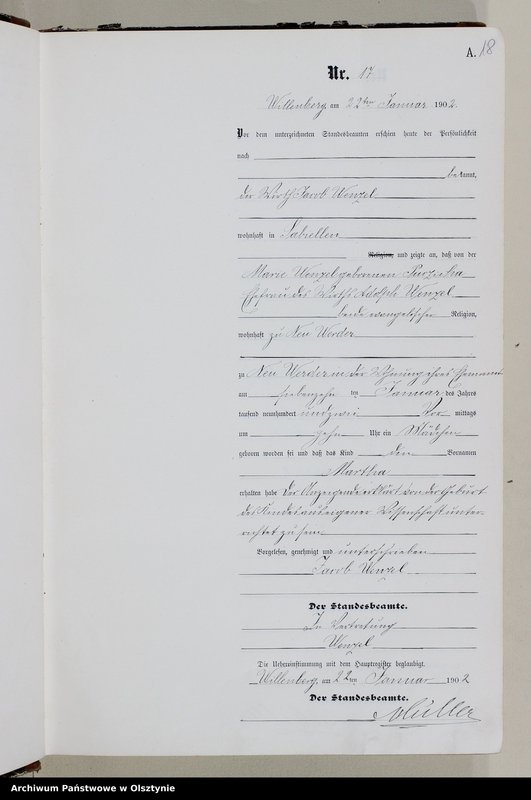 A. 18
Nr. 17
Willenberg, am 22ten Januar 1902.
Vor dem unterzeichneten Standesbeamten erschien heute der Persönlichkeit
nach
bekannt,
der Wirth Jacob Wenzel
wohnhaft in
Religion, und zeigte an, daß von der
Marie Wenzel geborenen
Ehefrau des Wirths Adolph Wenzel
beide evangelischer Religion,
wohnhaft zu Neu Werder
zu Neu Werder in der Wohnung ihres Ehemanns
am siebenzehnten Januar des Jahres
tausend neunhundert und zwei Vor mittags
um zehn Uhr ein Mädchen
geboren worden sei und daß das Kind den Vornamen
Martha
erhalten habe Der Anzeigende erklärt von der Geburt
des Kindes aus eigener Wissenschaft unter-
richtet zu sein
Vorgelesen, genehmigt und unterschrieben
Jacob Wenzel
Der Standesbeamte.
In Vertretung
Wenzel
Die Uebereinstimmung mit dem Hauptregister beglaubigt.
Willenberg, am 22ten Januar 1902
Der Standesbeamte.
Müller
Archiwum Państwowe w Olsztynie